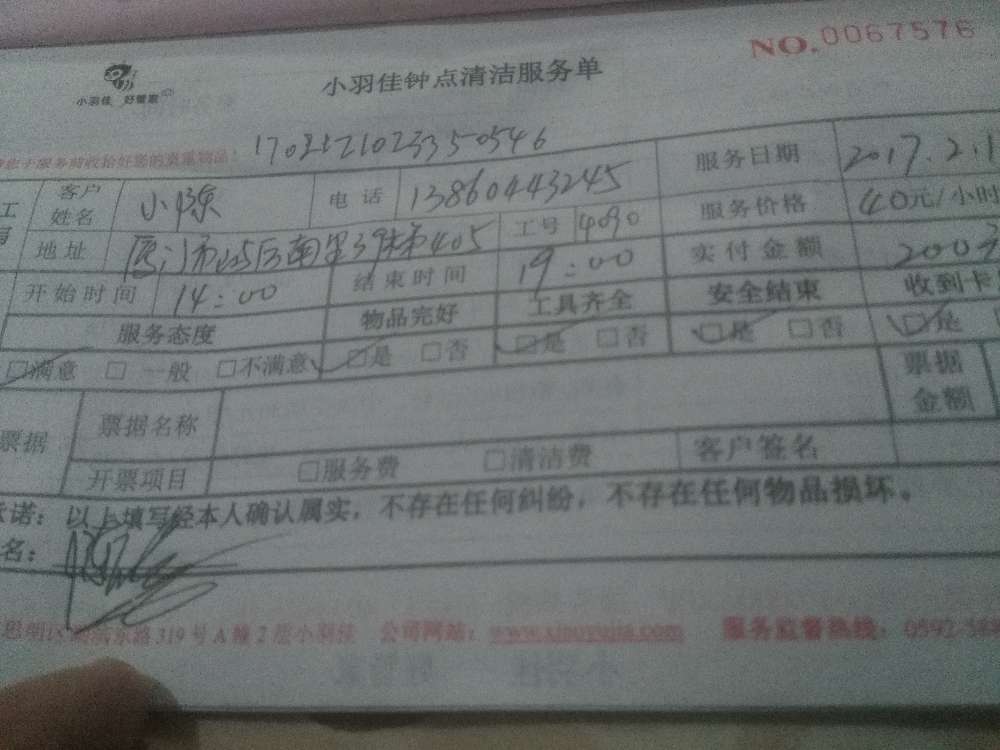 NO.0067576
小羽佳 好管家
小羽佳钟点清洁服务单
服务前收拾好您的贵重物品:
客户姓名 小陈 电话 13860443245 服务日期 2017.2.1
地址 厦门市 后南里39 405 工号 4090 服务价格 40元/小时
开始时间 14:00 结束时间 19:00 实付金额 200
服务态度 物品完好 工具齐全 安全结束 收到卡
□满意 □一般 □不满意 □是 □否 □是 □否 □是 □否 □是
票据 票据名称 票据金额
开票项目 □服务费 □清洁费 客户签名
诺:以上填写经本人确认属实,不存在任何纠纷,不存在任何物品损坏。
名:
思明区 东路319号A幢2 小羽佳 公司网站:www.xiaoyujia.com 服务监督热线:0592